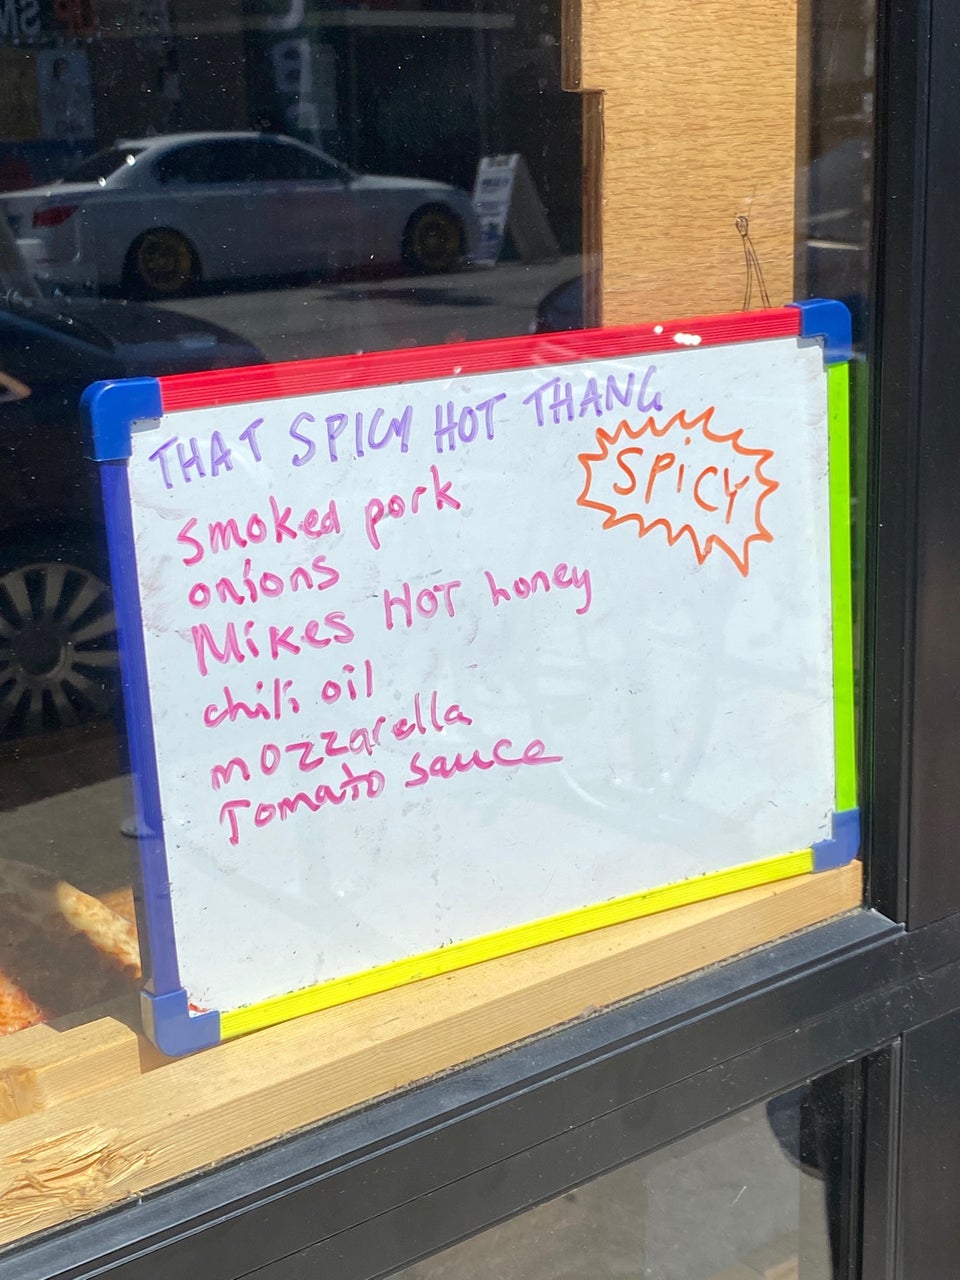 THAT SPICY HOT THANG
SPiCY
Smoked pork
onions
Mikes HOT honey
chili oil
mozzarella
Tomato sauce